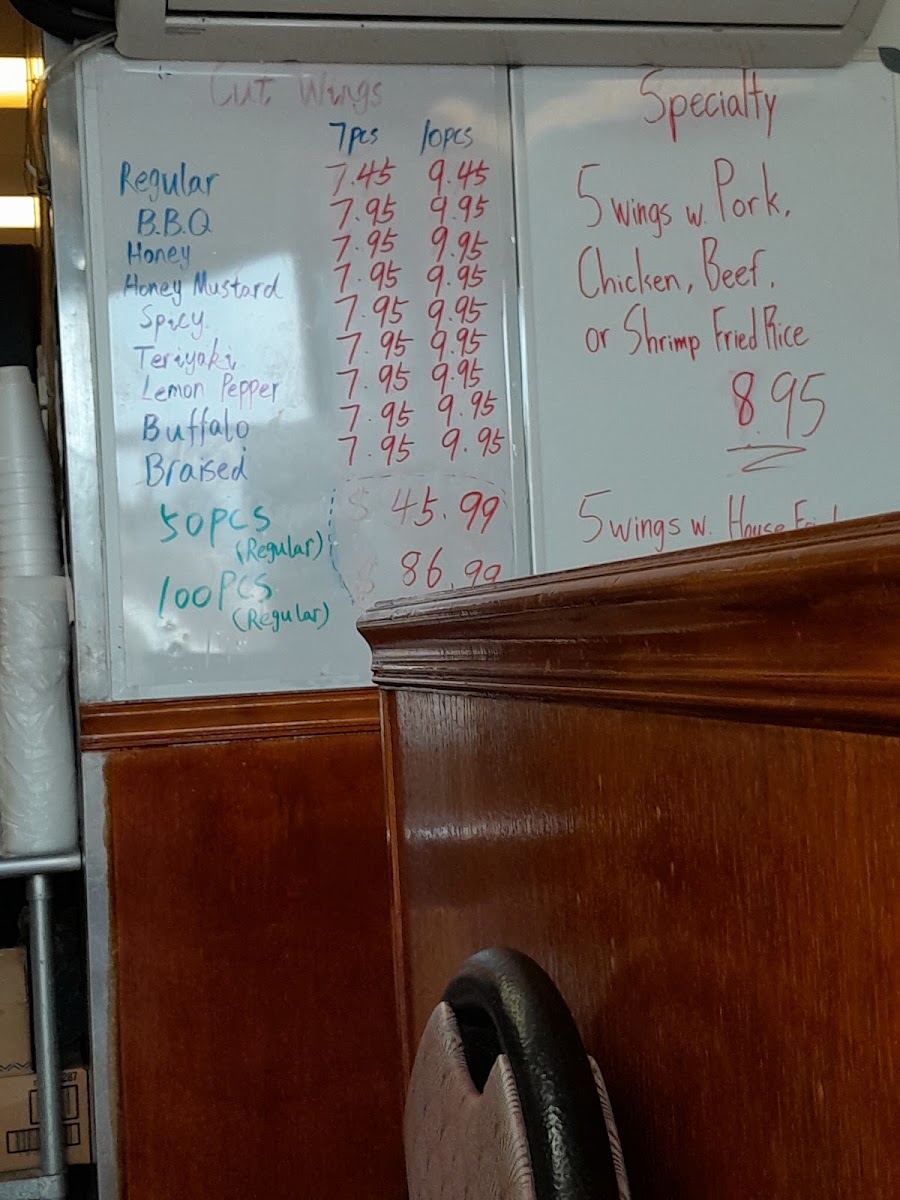 Cut Wings
7pcs 10pcs
Regular 7.45 9.45
B.B.Q 7.95 9.95
Honey 7.95 9.95
Honey Mustard 7.95 9.95
Spicy 7.95 9.95
Teriyaki 7.95 9.95
Lemon Pepper 7.95 9.95
Buffalo 7.95 9.95
Braised 7.95 9.95
50pcs $45.99
(Regular)
100pcs $86.99
(Regular)
Specialty
5 wings w. Pork,
Chicken, Beef,
or Shrimp Fried Rice
8.95
5 wings w. House